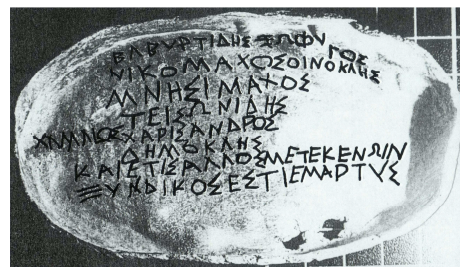 ΒΑΒΥΡΤΙΔΗΣ ΞΩΦΥΓΟΣ
ΝΙΚΟΜΑΧΟΣΟΙΝΟΚΛΗΣ
ΜΝΗΣΙΜΑΧΟΣ
ΤΕΙΣΩΝΙΔΗΣ
ΧΑΡΙΣΑΝΔΡΟΣ
ΔΗΜΟΚΛΗΣ
ΚΑΙΕΤΙΣΑΛΛΟΣΜΕΤΕΚΕΝΩΙΝ
ΞΥΝΔΙΚΟΣΕΣΤΙΕΜΑΡΤΥΣ